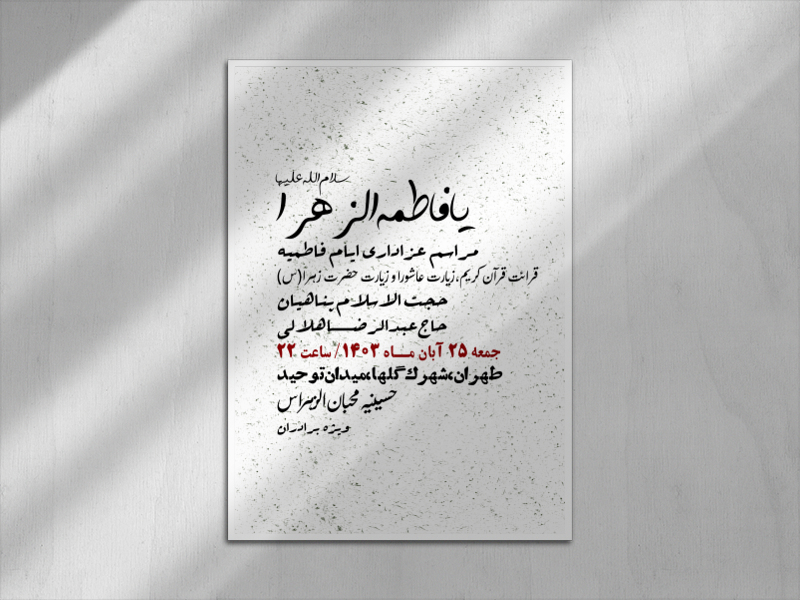 سلام الله علیها
یا فاطمه الزهرا
مراسم عزاداری ایام فاطمیه
قرائت قرآن کریم، زیارت عاشورا و زیارت حضرت زهرا (س)
حجت الاسلام پناهیان
حاج عبدالرضا هلالی
جمعه ۲۵ آبان ماه ۱۴۰۳ / ساعت ۲۲
طهران، شهرک گلها، میدان توحید
حسینیه محبان الزهرا س
ویژه برادران